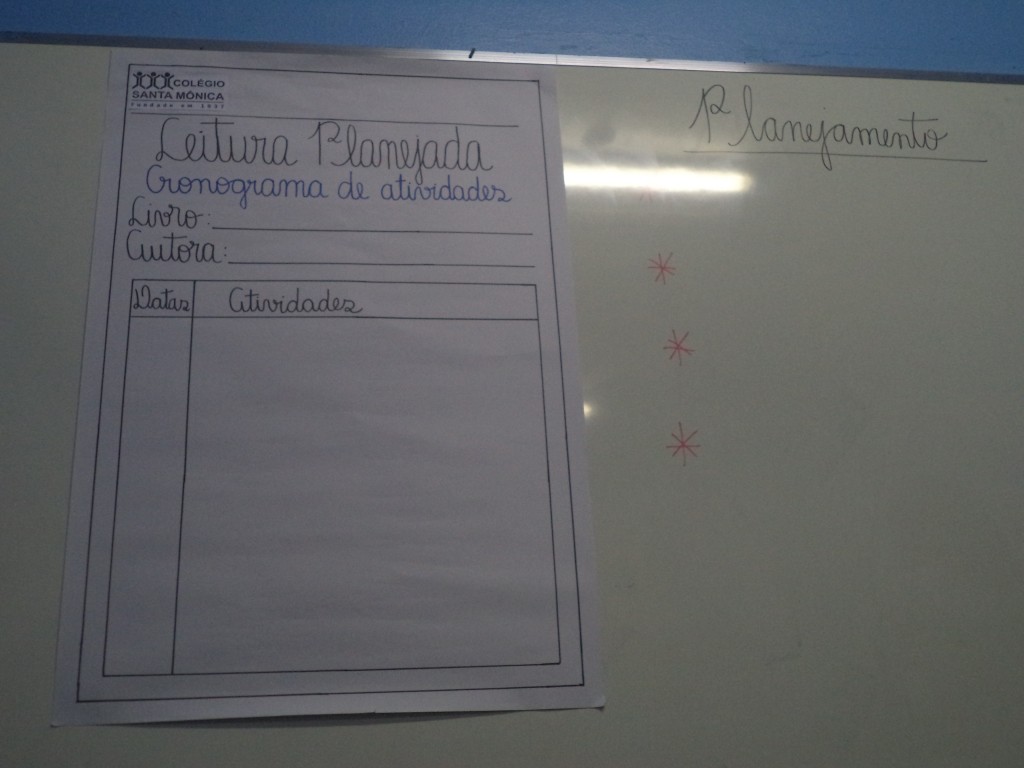 COLÉGIO
SANTA MÔNICA
Fundado em 1937
Leitura Planejada
Cronograma de atividades
Livro:
Autora:
Datas Atividades
Planejamento